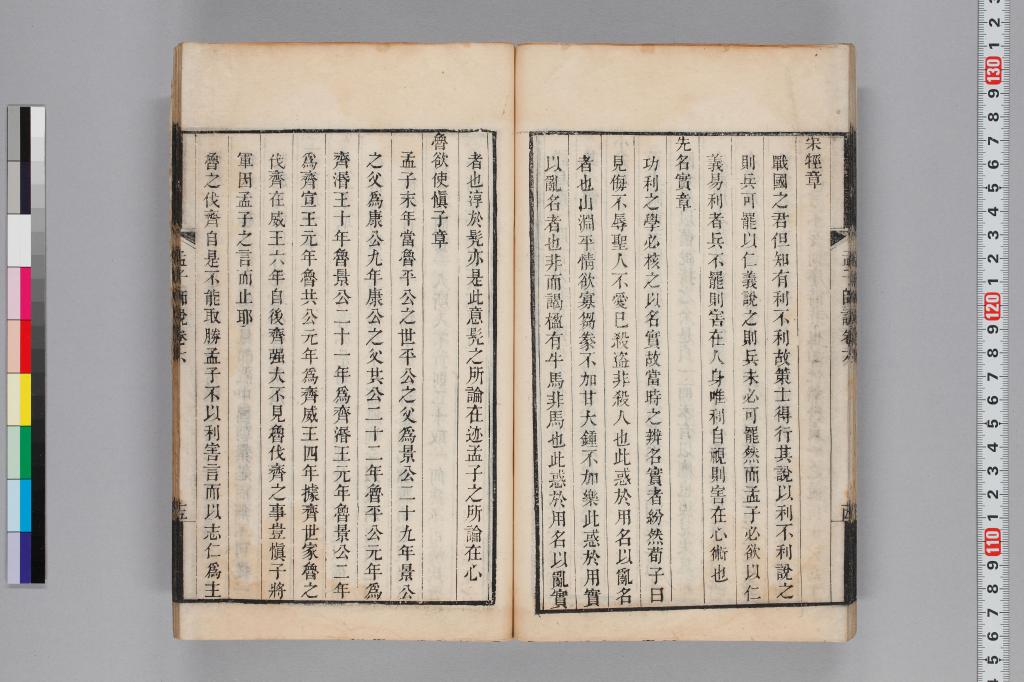 宋牼章
戰國之君但知有利不利故策士得行其說以利不利說之
則兵可罷以仁義說之則兵未必可罷然而孟子必欲以仁
義易利者兵不罷則害在人身唯利自視則害在心術也
先名實章
功利之學必核之以名實故當時之辨名實者紛然荀子曰
見侮不辱聖人不愛已殺盗非殺人也此惑於用名以亂名
者也山淵平情欲寡芻豢不加甘大鍾不加樂此惑於用實
以亂名者也非而謁楹有牛馬非馬也此惑於用名以亂實
者也淳於髡亦是此意髡之所論在迹孟子之所論在心
魯欲使愼子章
孟子末年當魯平公之世平公之父爲景公二十九年景公
之父爲康公九年康公之父共公二十二年魯平公元年爲
齊湣王十年魯景公二十一年爲齊湣王元年魯景公二年
爲齊宣王元年魯共公元年爲齊威王四年據齊世家魯之
伐齊在威王六年自後齊强大不見魯伐齊之事豈愼子將
軍因孟子之言而止耶
魯之伐齊自是不能取勝孟子不以利害言而以志仁爲主
孟子師說卷六